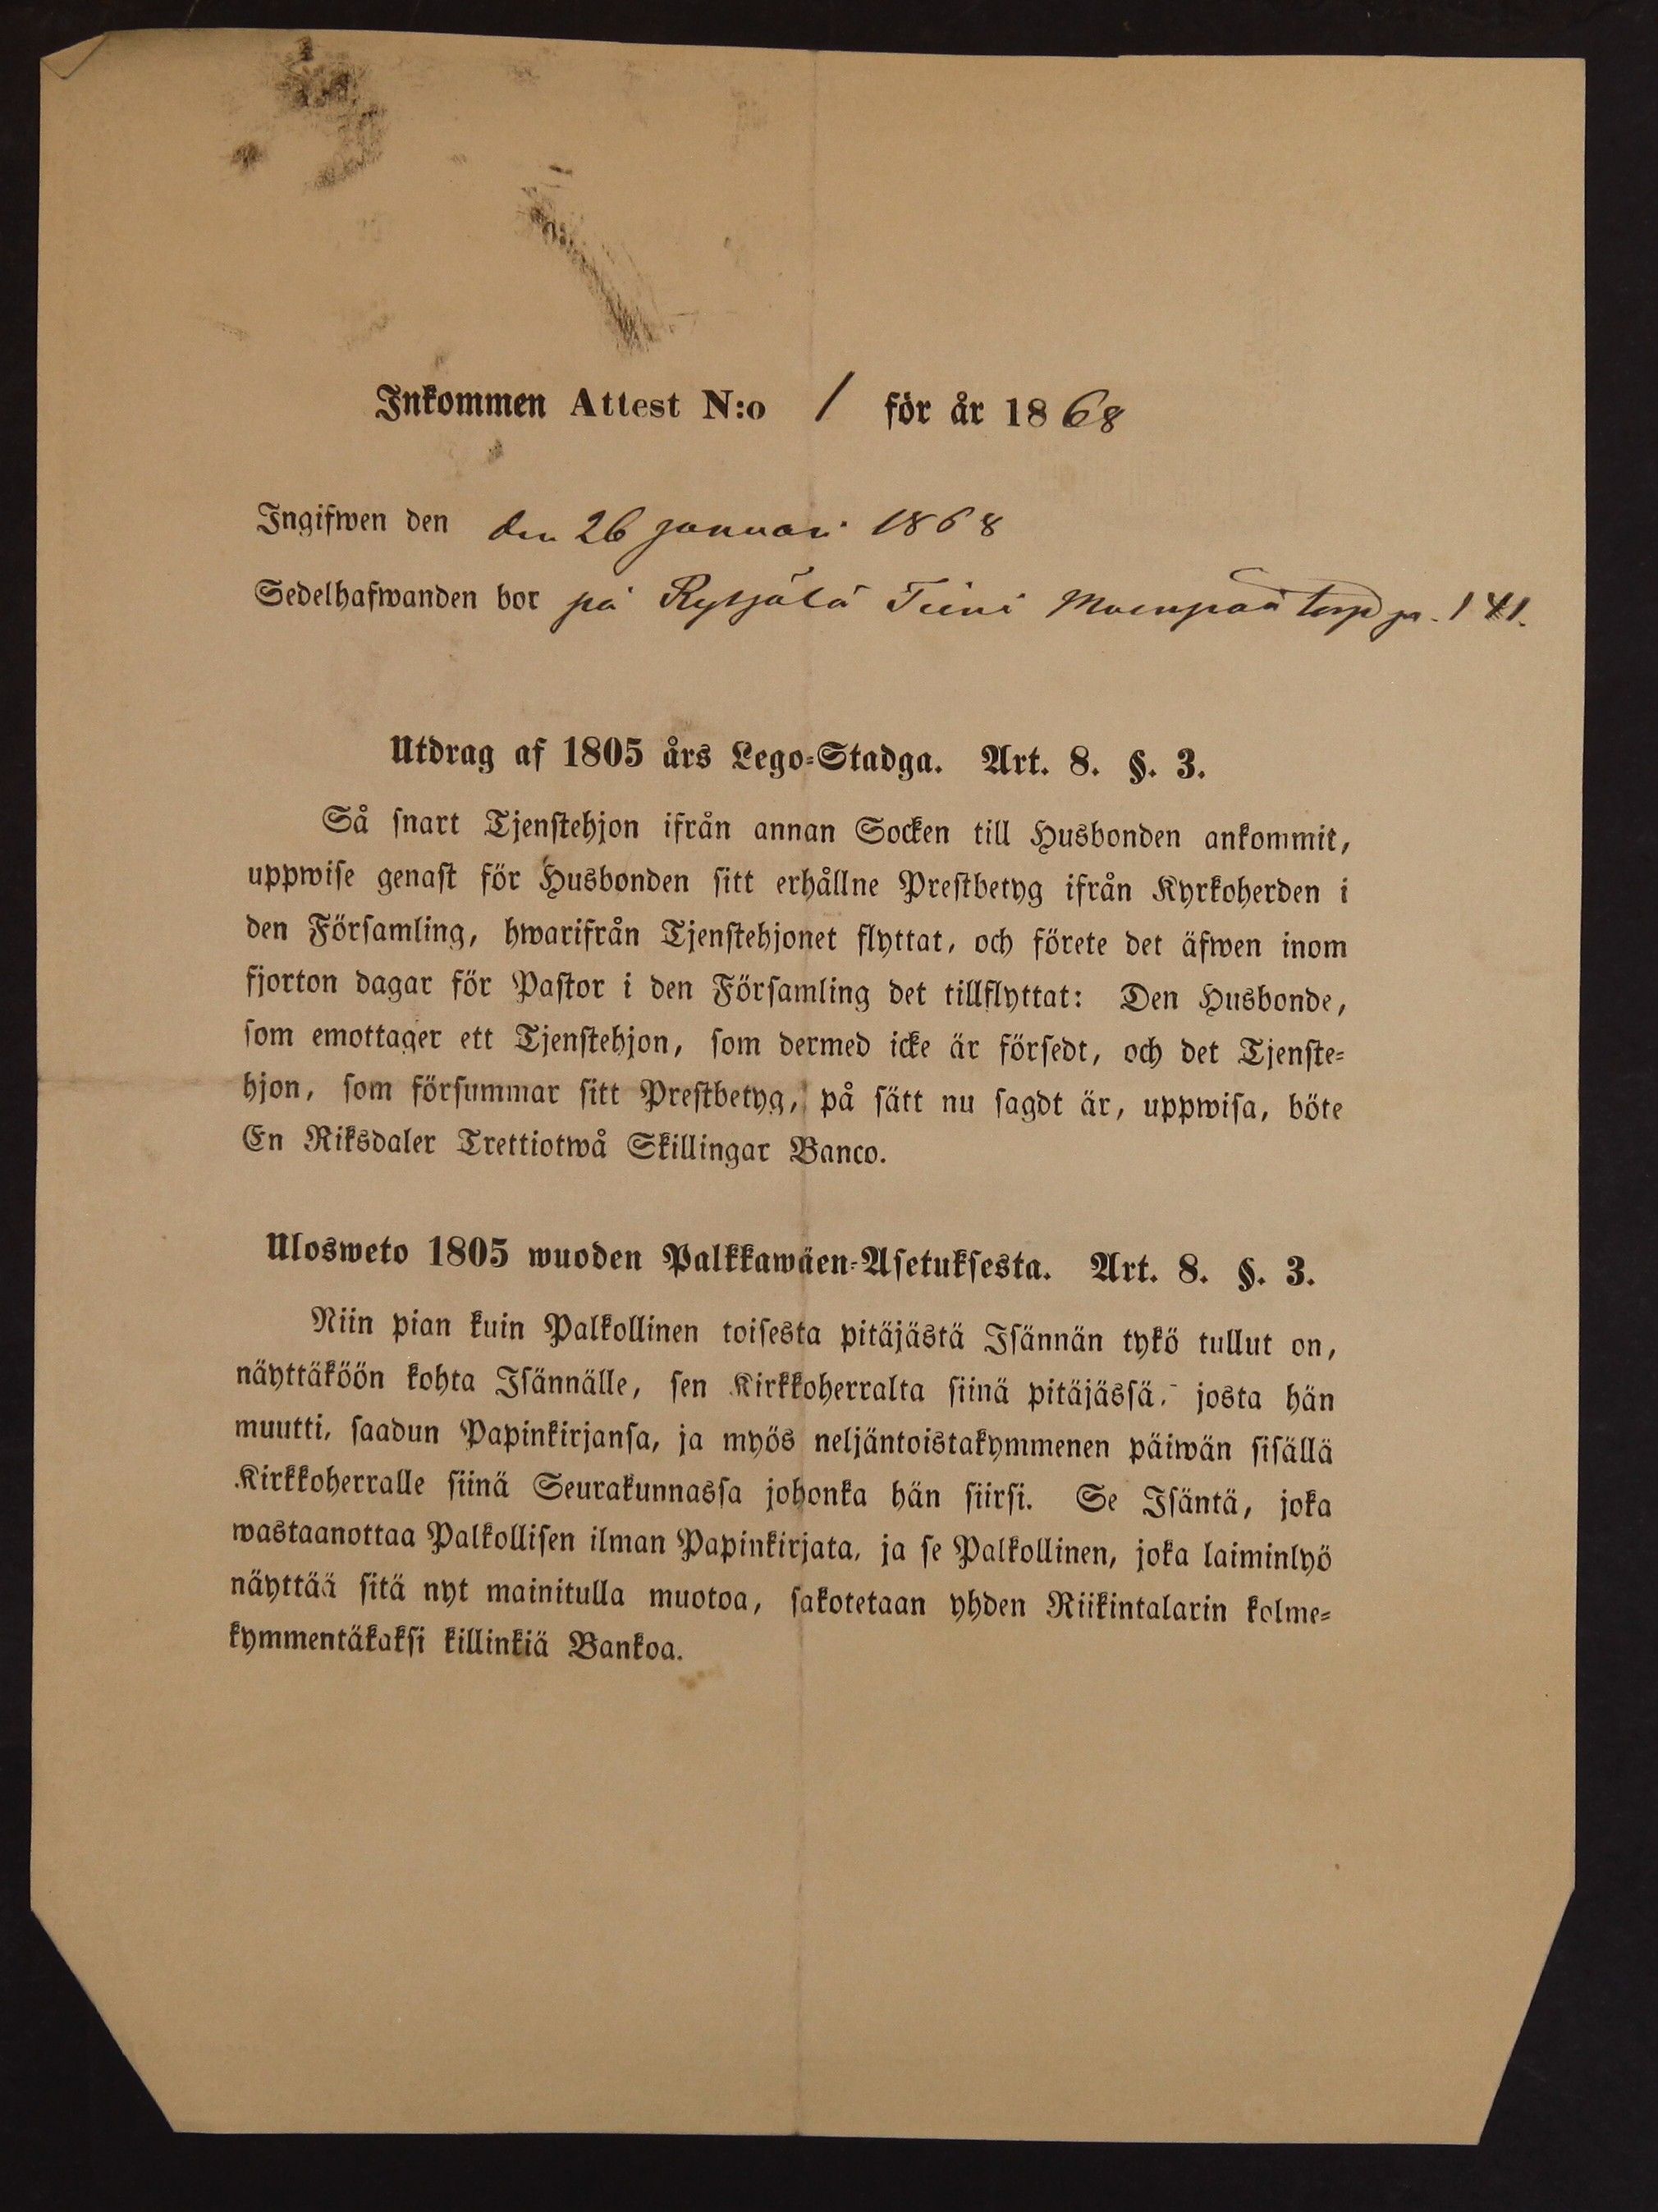 Inkommen Attest N:o 1 för år 1868
Ingifwen den den 26 januari 1868
Sedelhafwanden bor på Rytjälä torp 141.
Utdrag af 1805 års Lego-Stadga. Art. 8. §. 3.
Så snart Tjenstehjon ifrån annan Socken till Husbonden ankommit,
uppwise genast för Husbonden sitt erhållne Prestbetyg ifrån Kyrkoherden i
den Församling, hwarifrån Tjenstehjonet flyttat, och förete det äfwen inom
fjorton dagar för Pastor i den Församling det tillflyttat: Den Husbonde,
som emottager ett Tjenstehjon, som dermed icke är försedt, och det Tjenste-
hjon, som försummar sitt Prestbetyg, på sätt nu sagdt är, uppwisa, böte
En Riksdaler Trettiotwå Skillingar Banco.
Ulosweto 1805 wuoden Palkkawäen-Asetuksesta. Art. 8. §. 3.
Niin pian kuin Palkollinen toisesta pitäjästä Isännän tykö tullut on,
näyttäköön kohta Isännälle, sen Kirkkoherralta siinä pitäjässä, josta hän
muutti, saadun Papinkirjansa, ja myös neljäntoistakymmenen päiwän sisällä
Kirkkoherralle siinä Seurakunnassa johonka hän siirsi. Se Isäntä, joka
wastaanottaa Palkollisen ilman Papinkirjata, ja se Palkollinen, joka laiminlyö
näyttää sitä nyt mainitulla muotoa, sakotetaan yhden Riikintalarin kolme-
kymmentäkaksi killinkiä Bankoa.